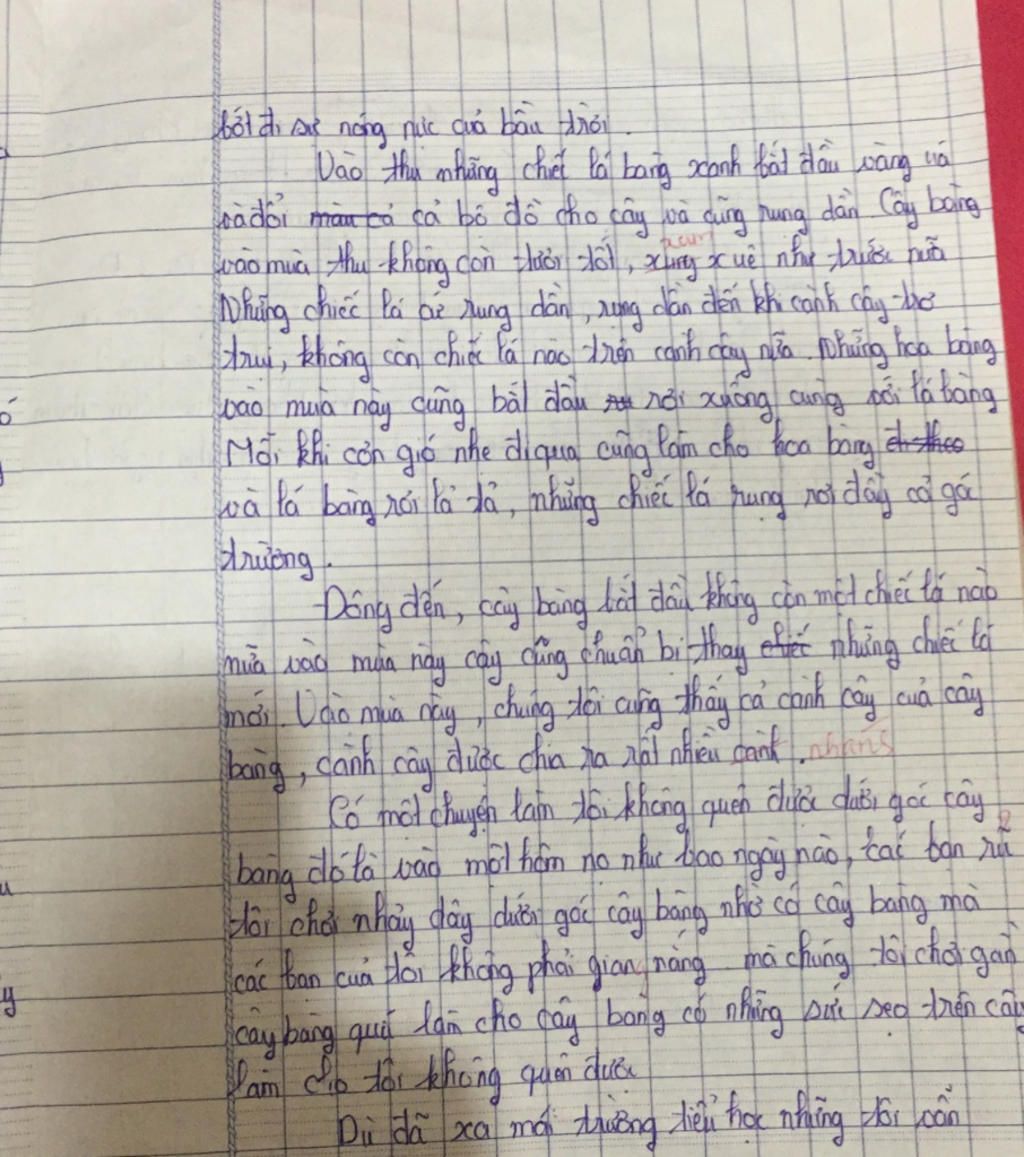 bớt đi sự nóng nực quả bầu trời.
Vào thu những chiếc lá bàng xanh bắt đầu vàng và
và đổi màu cả cả bộ đồ cho cây và cũng rụng dần Cây bàng
vào mùa thu không còn tươi tốt, xung xuê như trước nữa
Những chiếc lá cứ rụng dần, rụng dần đến khi cành cây trơ
trụi, không còn chiếc lá nào trên cành cây nữa. Những hoa bàng
vào mùa này cũng bắt đầu rơi xuống cùng với lá bàng
Mỗi khi cơn gió nhẹ đi qua cũng làm cho hoa bàng đi theo
và lá bàng rơi lả tả, những chiếc lá rụng rơi đầy cả gó
trường.
Đông đến, cây bàng bắt đầu không còn một chiếc lá nào
nữa vào mùa này cây cũng chuẩn bị thay chiếc những chiếc lá
mới. Vào mùa này, chúng tôi cũng thấy cả cành cây của cây
bàng, cành cây được chia ra rất nhiều cành. nhánh
Có một chuyện làm tôi không quên được dưới gốc cây
bàng đó là vào một hôm nọ như bao ngày nào, các bạn rủ
tôi chơi nhảy dây dưới gốc cây bàng nhờ có cây bàng mà
các bạn của tôi không phải gian nắng mà chúng tôi chơi gần
cây bàng quá làm cho cây bàng có những sức sẹo trên cây
làm cho tôi không quên được
Dù đã xa mái trường tiểu học nhưng tôi vẫn